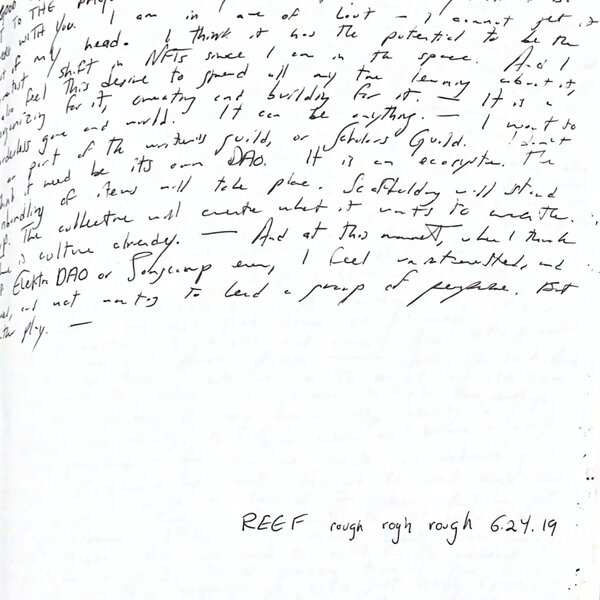 good
TO THE
WITH YOU. I am in awe of Loot — I cannot get it
of my head. I think it has the potential to be the
shift in NFTs since I am in the space. And I
feel this desire to spend all my time learning about it,
organizing for it, creating and building for it. — It is a
borderless game and world. It can be anything. — I want to
or part of the writer's guild, or Scholars Guild. I don't
think it need be its own DAO. It is an ecosystem. The
unbundling of items will take place. Scaffolding will stand
up. The collective will create what it wants to create.
is culture already. — And at this moment, when I think
Elektra DAO or Songcamp even, I feel uninterested, and
and not wanting to lead a group of people. But
play. —
REEF rough rogh rough 6.24.19